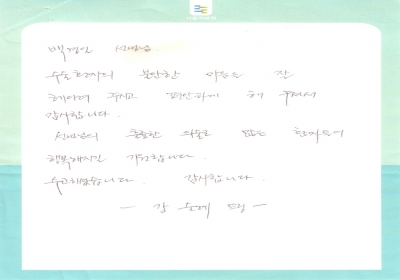 백경인 선생님
수술환자의 불안한 마음을 잘
헤아려 주시고 편안하게 해 주셔서
감사합니다.
선생님의 훌륭한 의술로 많은 환자들이
행복해지길 기원합니다.
수고하셨습니다. 감사합니다.
- 김순례 드림 -